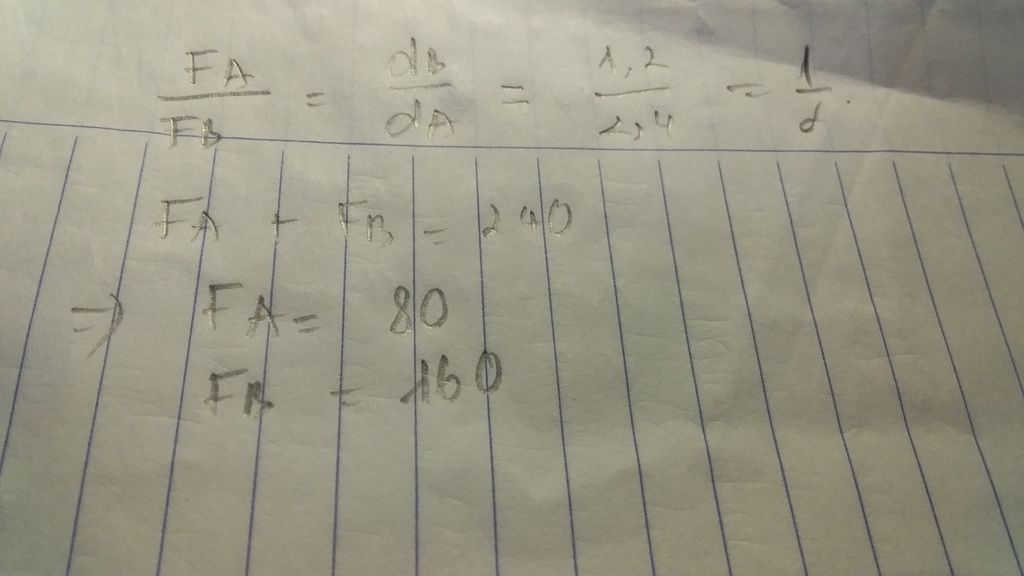 FA/FB = dB/dA = 1,2/2,4 = 1/2.
FA + FB = 240
=> FA = 80
FB = 160